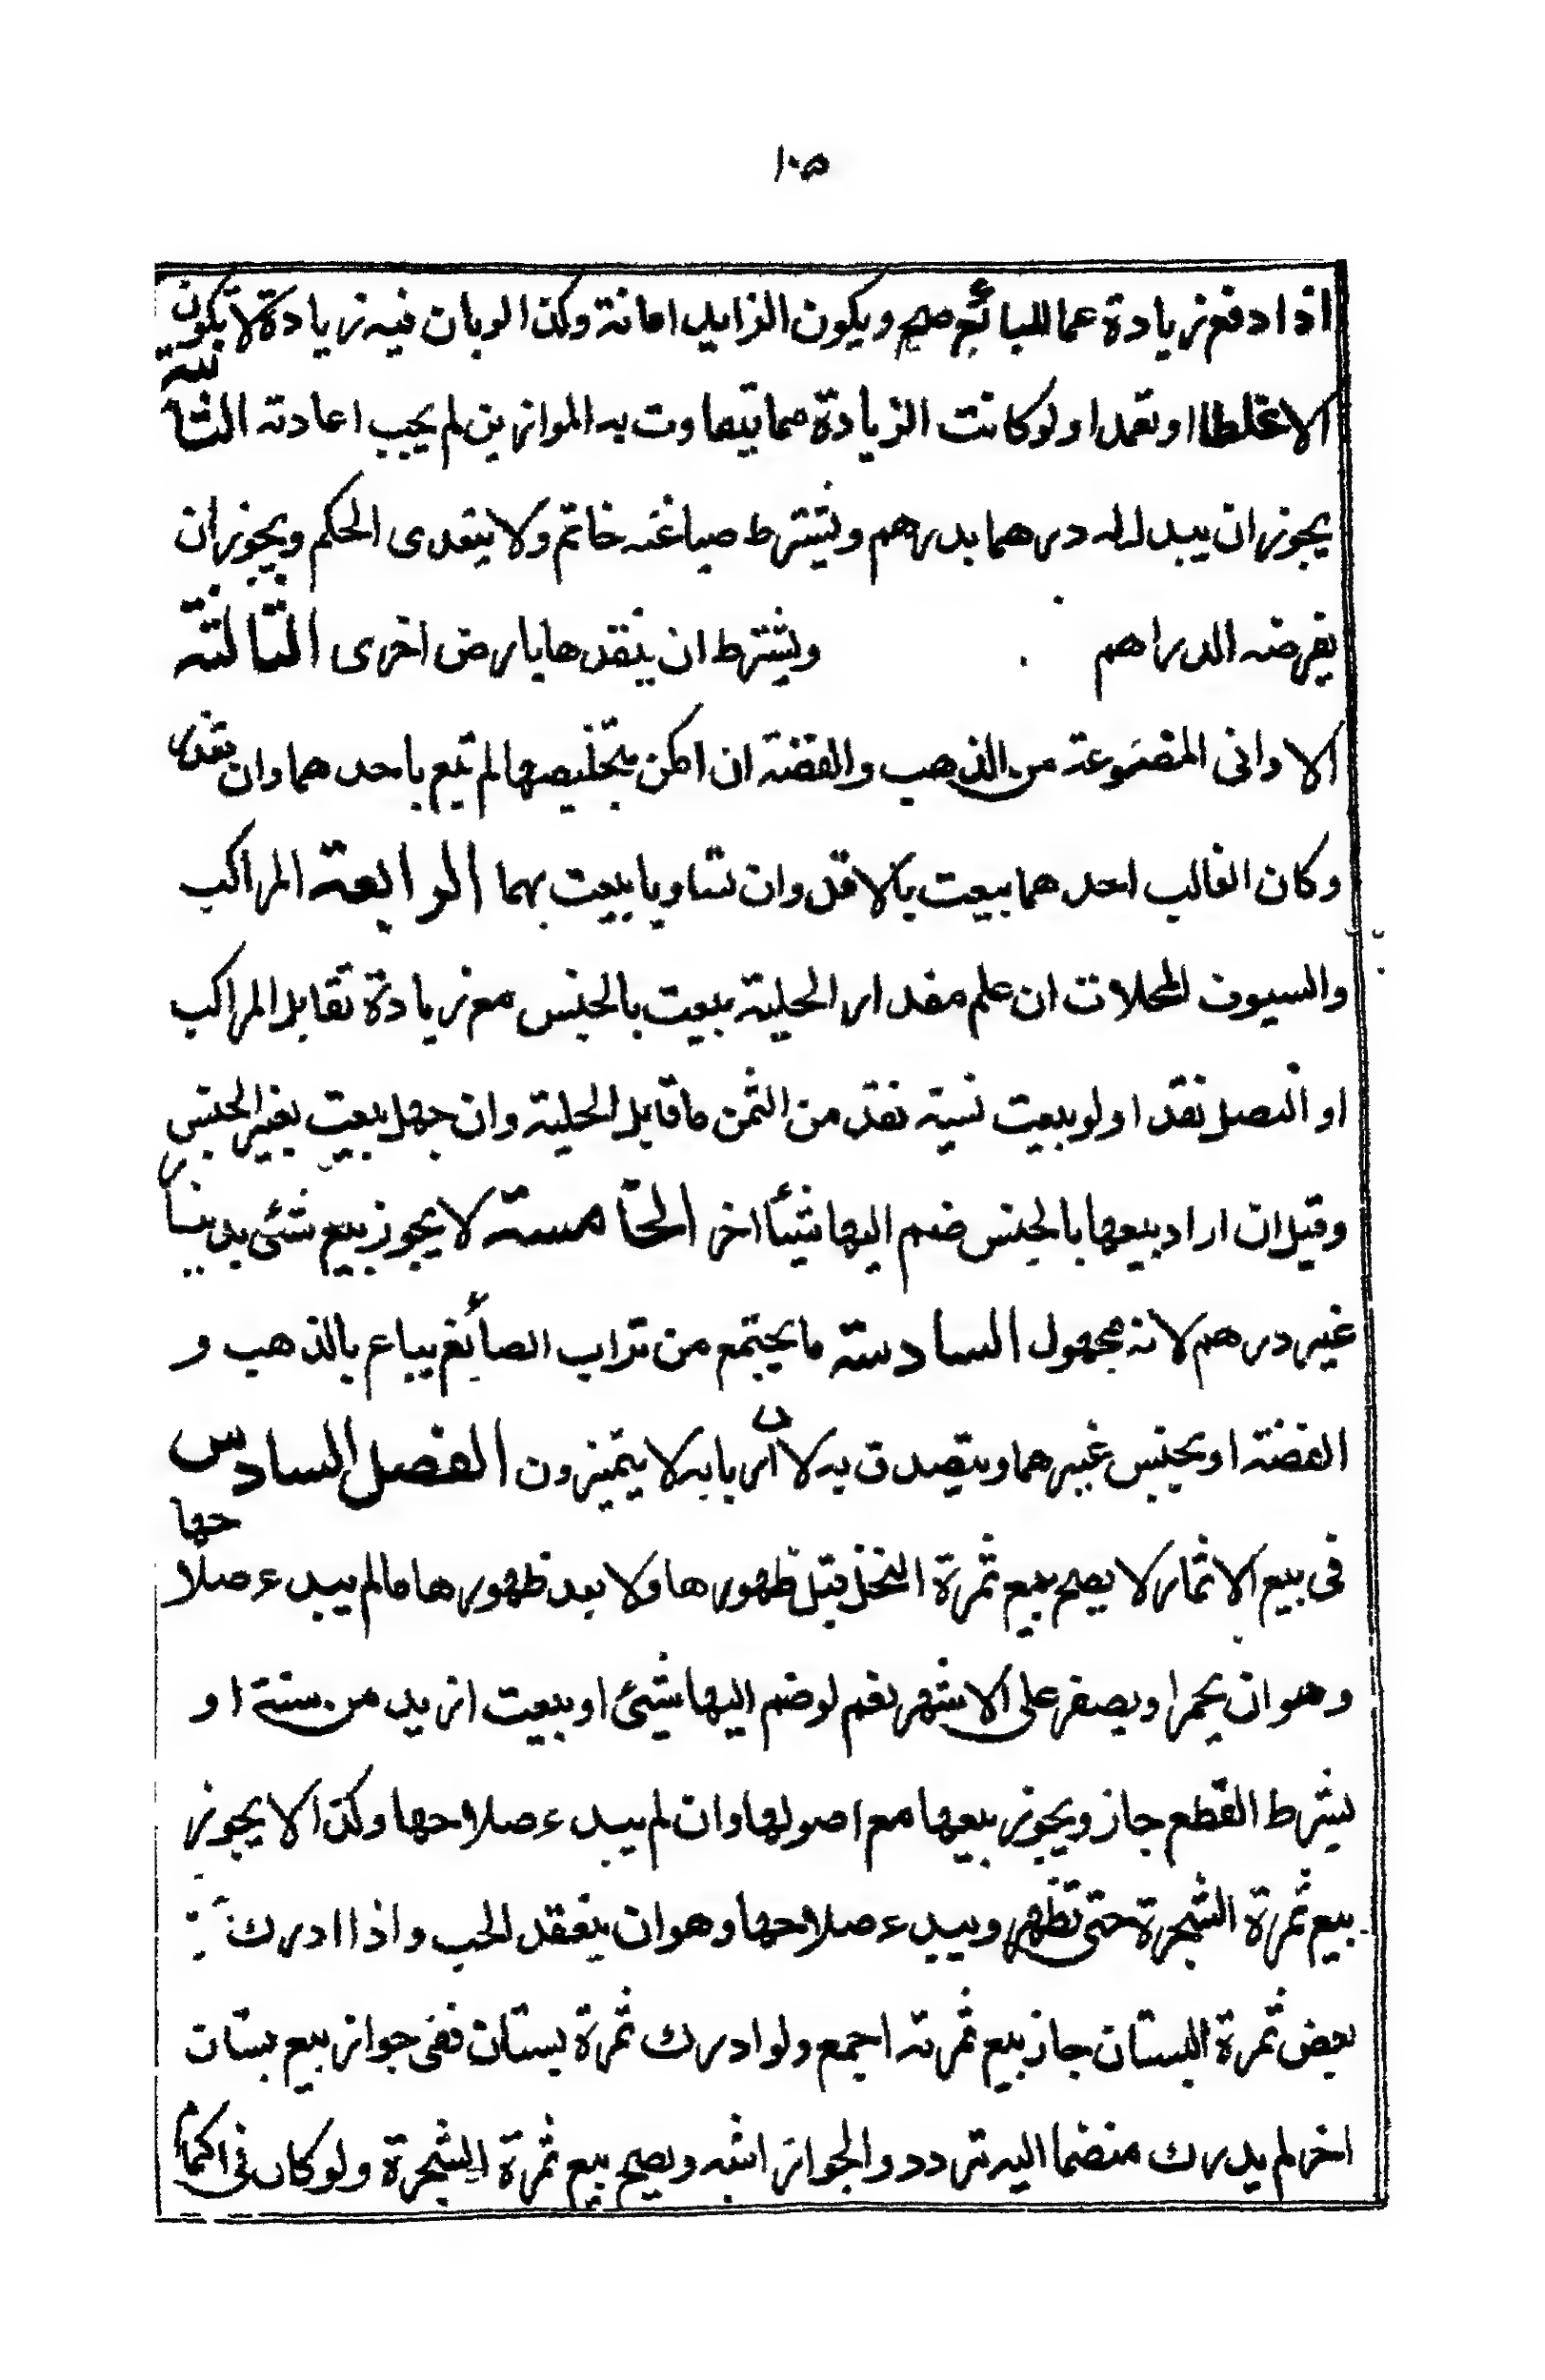 ١٠٥
اذا دفع زيادة عما للبائع صح ويكون الزايد امانة وكذا لو بان فيه زيادة لا تكون
الا غلطا او تعمدا ولو كانت الزيادة مما يتفاوت به الموازين لم يجب اعادته الثانية
يجوز ان يبدل له درهما بدرهم ويشترط صياغة خاتم ولا يتعدى الحكم ويجوز ان
يقرضه الدراهم ويشترط ان ينقدها بارض اخرى الثالثة
الاوانى المصنوعة من الذهب والفضة ان امكن تخليصها لم تبع باحدهما وان تعذر
وكان الغالب احدهما بيعت بالاقل وان تساويا بيعت بهما الرابعة المراكب
والسيوف المحلات ان علم مقدار الحلية بيعت بالجنس مع زيادة تقابل المراكب
او النصل نقدا ولو بيعت نسية نقد من الثمن ما قابل الحلية وان جهل بيعت بغير الجنس
وقيل ان اراد بيعها بالجنس ضم اليها شيئا اخر الخامسة لا يجوز بيع شئ بدينار
غير درهم لانه مجهول السادسة ما يجتمع من تراب الصائغ يباع بالذهب و
الفضة او بجنس غيرهما ويتصدق به لان اربابه لا يتميزون الفصل السادس
فى بيع الاثمار لا يصح بيع ثمرة النخل قبل ظهورها ولا بعد ظهورها ما لم يبدء صلاحها
وهو ان يحمر او يصفر على الاشهر نعم لو ضم اليها شيئ او بيعت ازيد من سنة او
بشرط القطع جاز ويجوز بيعها مع اصولها وان لم يبدء صلاحها وكذا لا يجوز
بيع ثمرة الشجرة حتى تظهر ويبدء صلاحها وهو ان ينعقد الحب واذا ادرك
بعض ثمرة البستان جاز بيع ثمرته اجمع ولو ادرك ثمرة بستان ففى جواز بيع بستان
اخر لم يدرك منضما اليه تردد والجواز اشبه ويصح بيع ثمرة الشجرة ولو كان فى اكمام